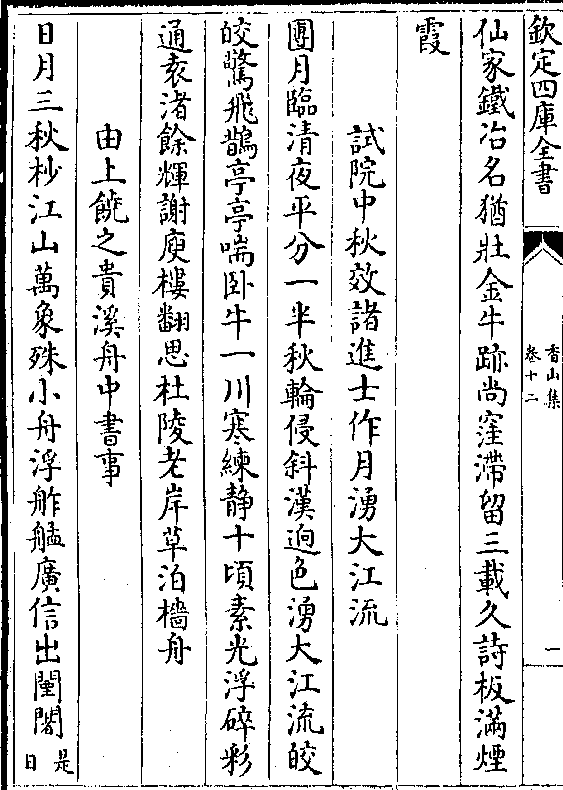 欽定四庫全書
香山集
卷十二
一
仙家鐵冶名猶壯金牛跡尚窪滯留三載久詩板滿煙
霞
試院中秋效諸進士作月湧大江流
團月臨清夜平分一半秋輪侵斜漢逈色湧大江流皎
皎驚飛鵲亭亭喘卧牛一川寒練静十頃素光浮碎彩
通袁渚餘輝謝庾樓翻思杜陵老岸草泊檣舟
由上饒之貴溪舟中書事
日月三秋杪江山萬象殊小舟浮舴艋廣信出闉闍是
日